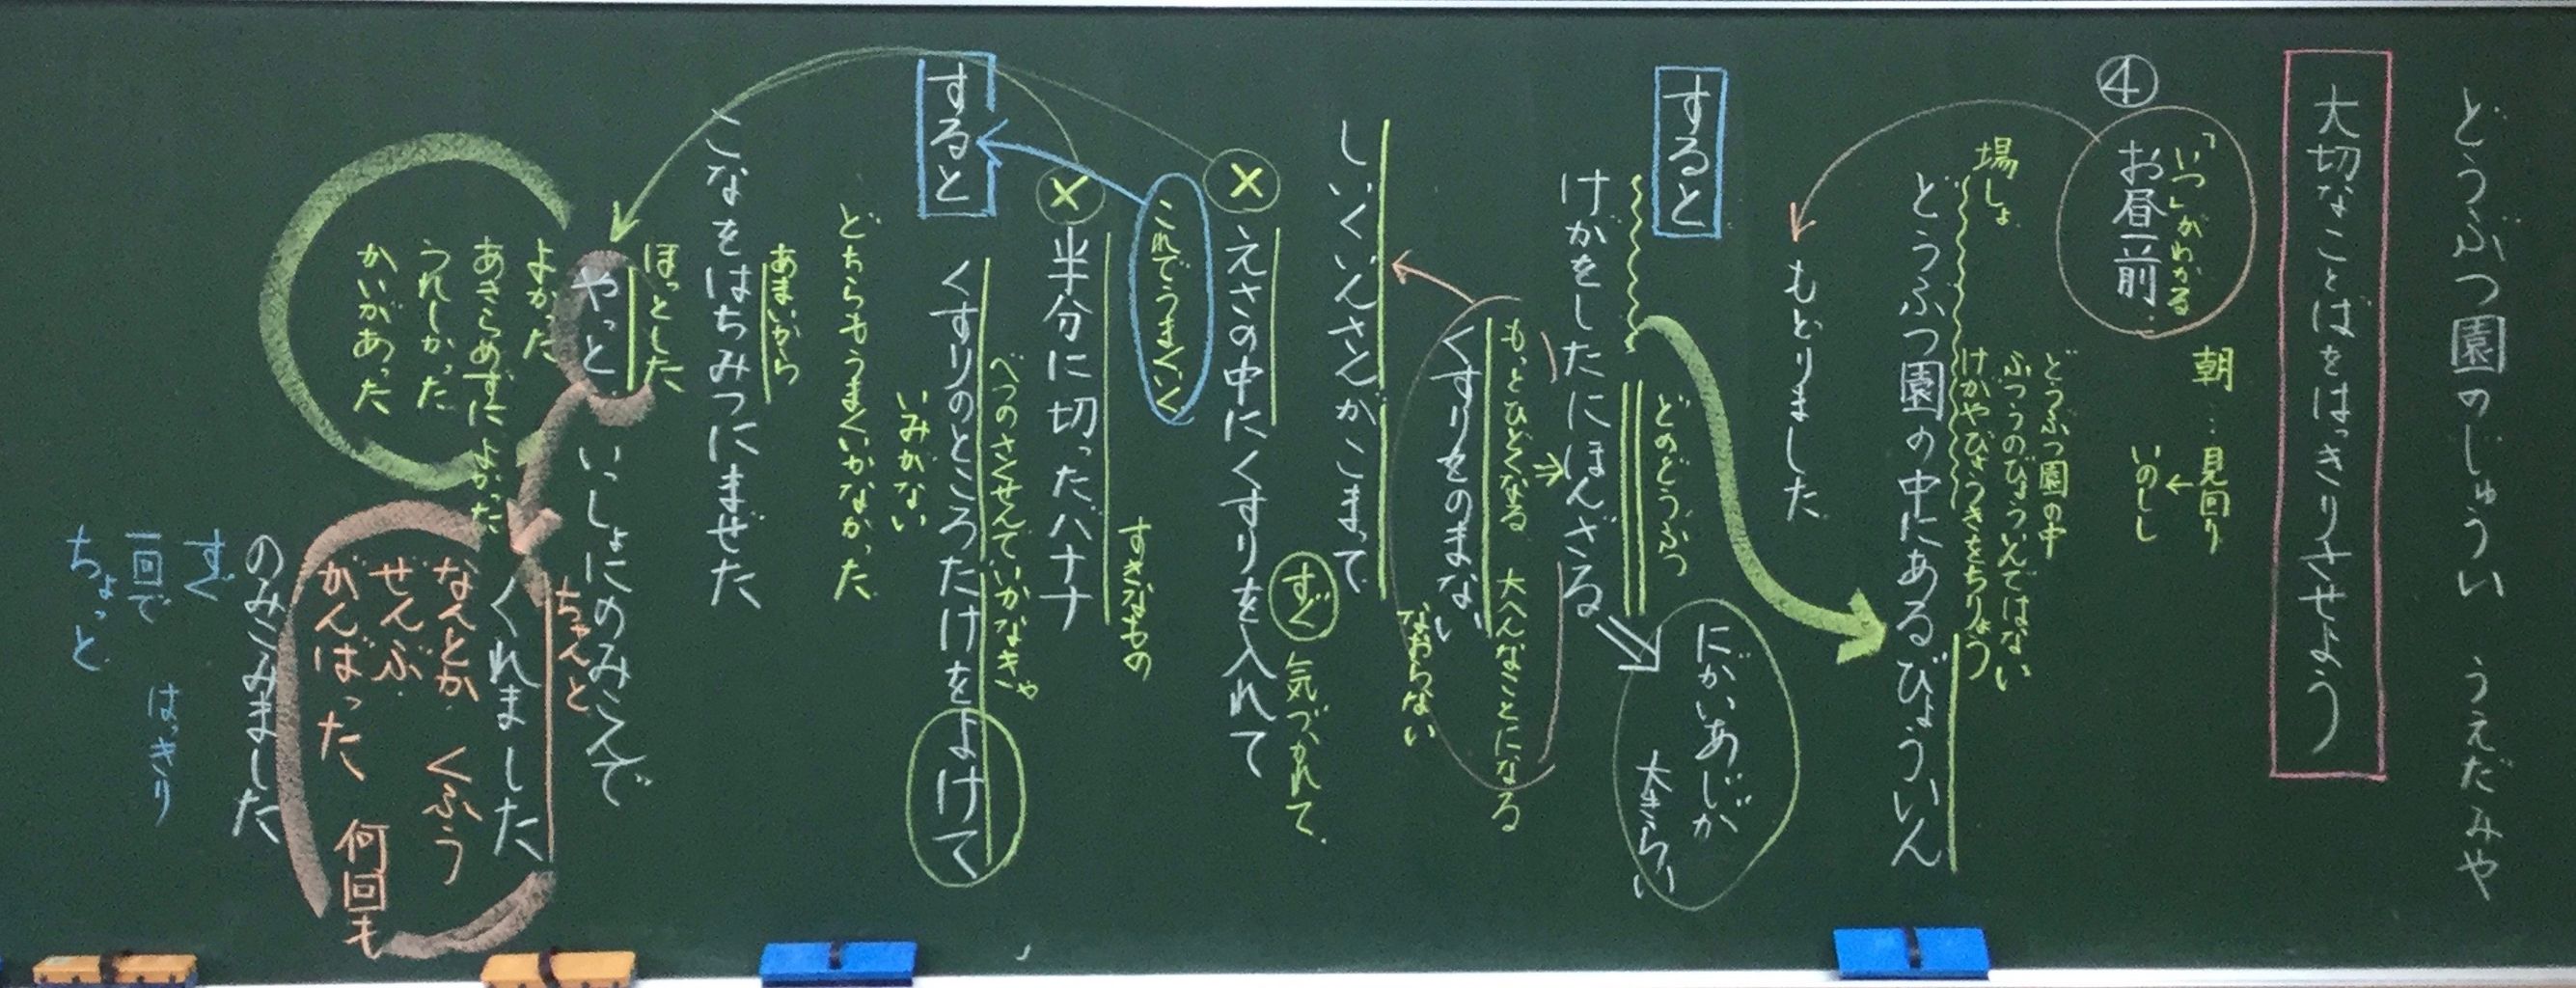 どうぶつ園のじゅうい　うえだみや
大切なことばをはっきりさせよう
④
「いつ」がわかる
お昼前
朝…見回り
↓
いのしし
もどりました
場しょ
どうぶつ園の中
ふつうのびょういんではない
けがやびょうきをちりょう
どうぶつ園の中にあるびょういん
すると
どのどうぶつ
けがをしたにほんざる
にがいあじが
大きらい
もっとひどくなる　大へんなことになる
くすりをのまない
なおらない
しいくいんさんがこまって
×
えさの中にくすりを入れて
すぐ　気づかれて
これでうまくいく
×
半分に切ったバナナ
すきなもの
すると
べつのさくせんでいかなきゃ
くすりのところだけをよけて
いみがない
どちらもうまくいかなかった
あまいから
こなをはちみつにまぜた
ほっとした
やっと
よかった
あきらめずによかった
うれしかった
かいがあった
いっしょにのみこんで
ちゃんと
くれました
なんとか　くふう
ぜんぶ
がんばった　何回も
のみこみました
すぐ
一回で　はっきり
ちょっと